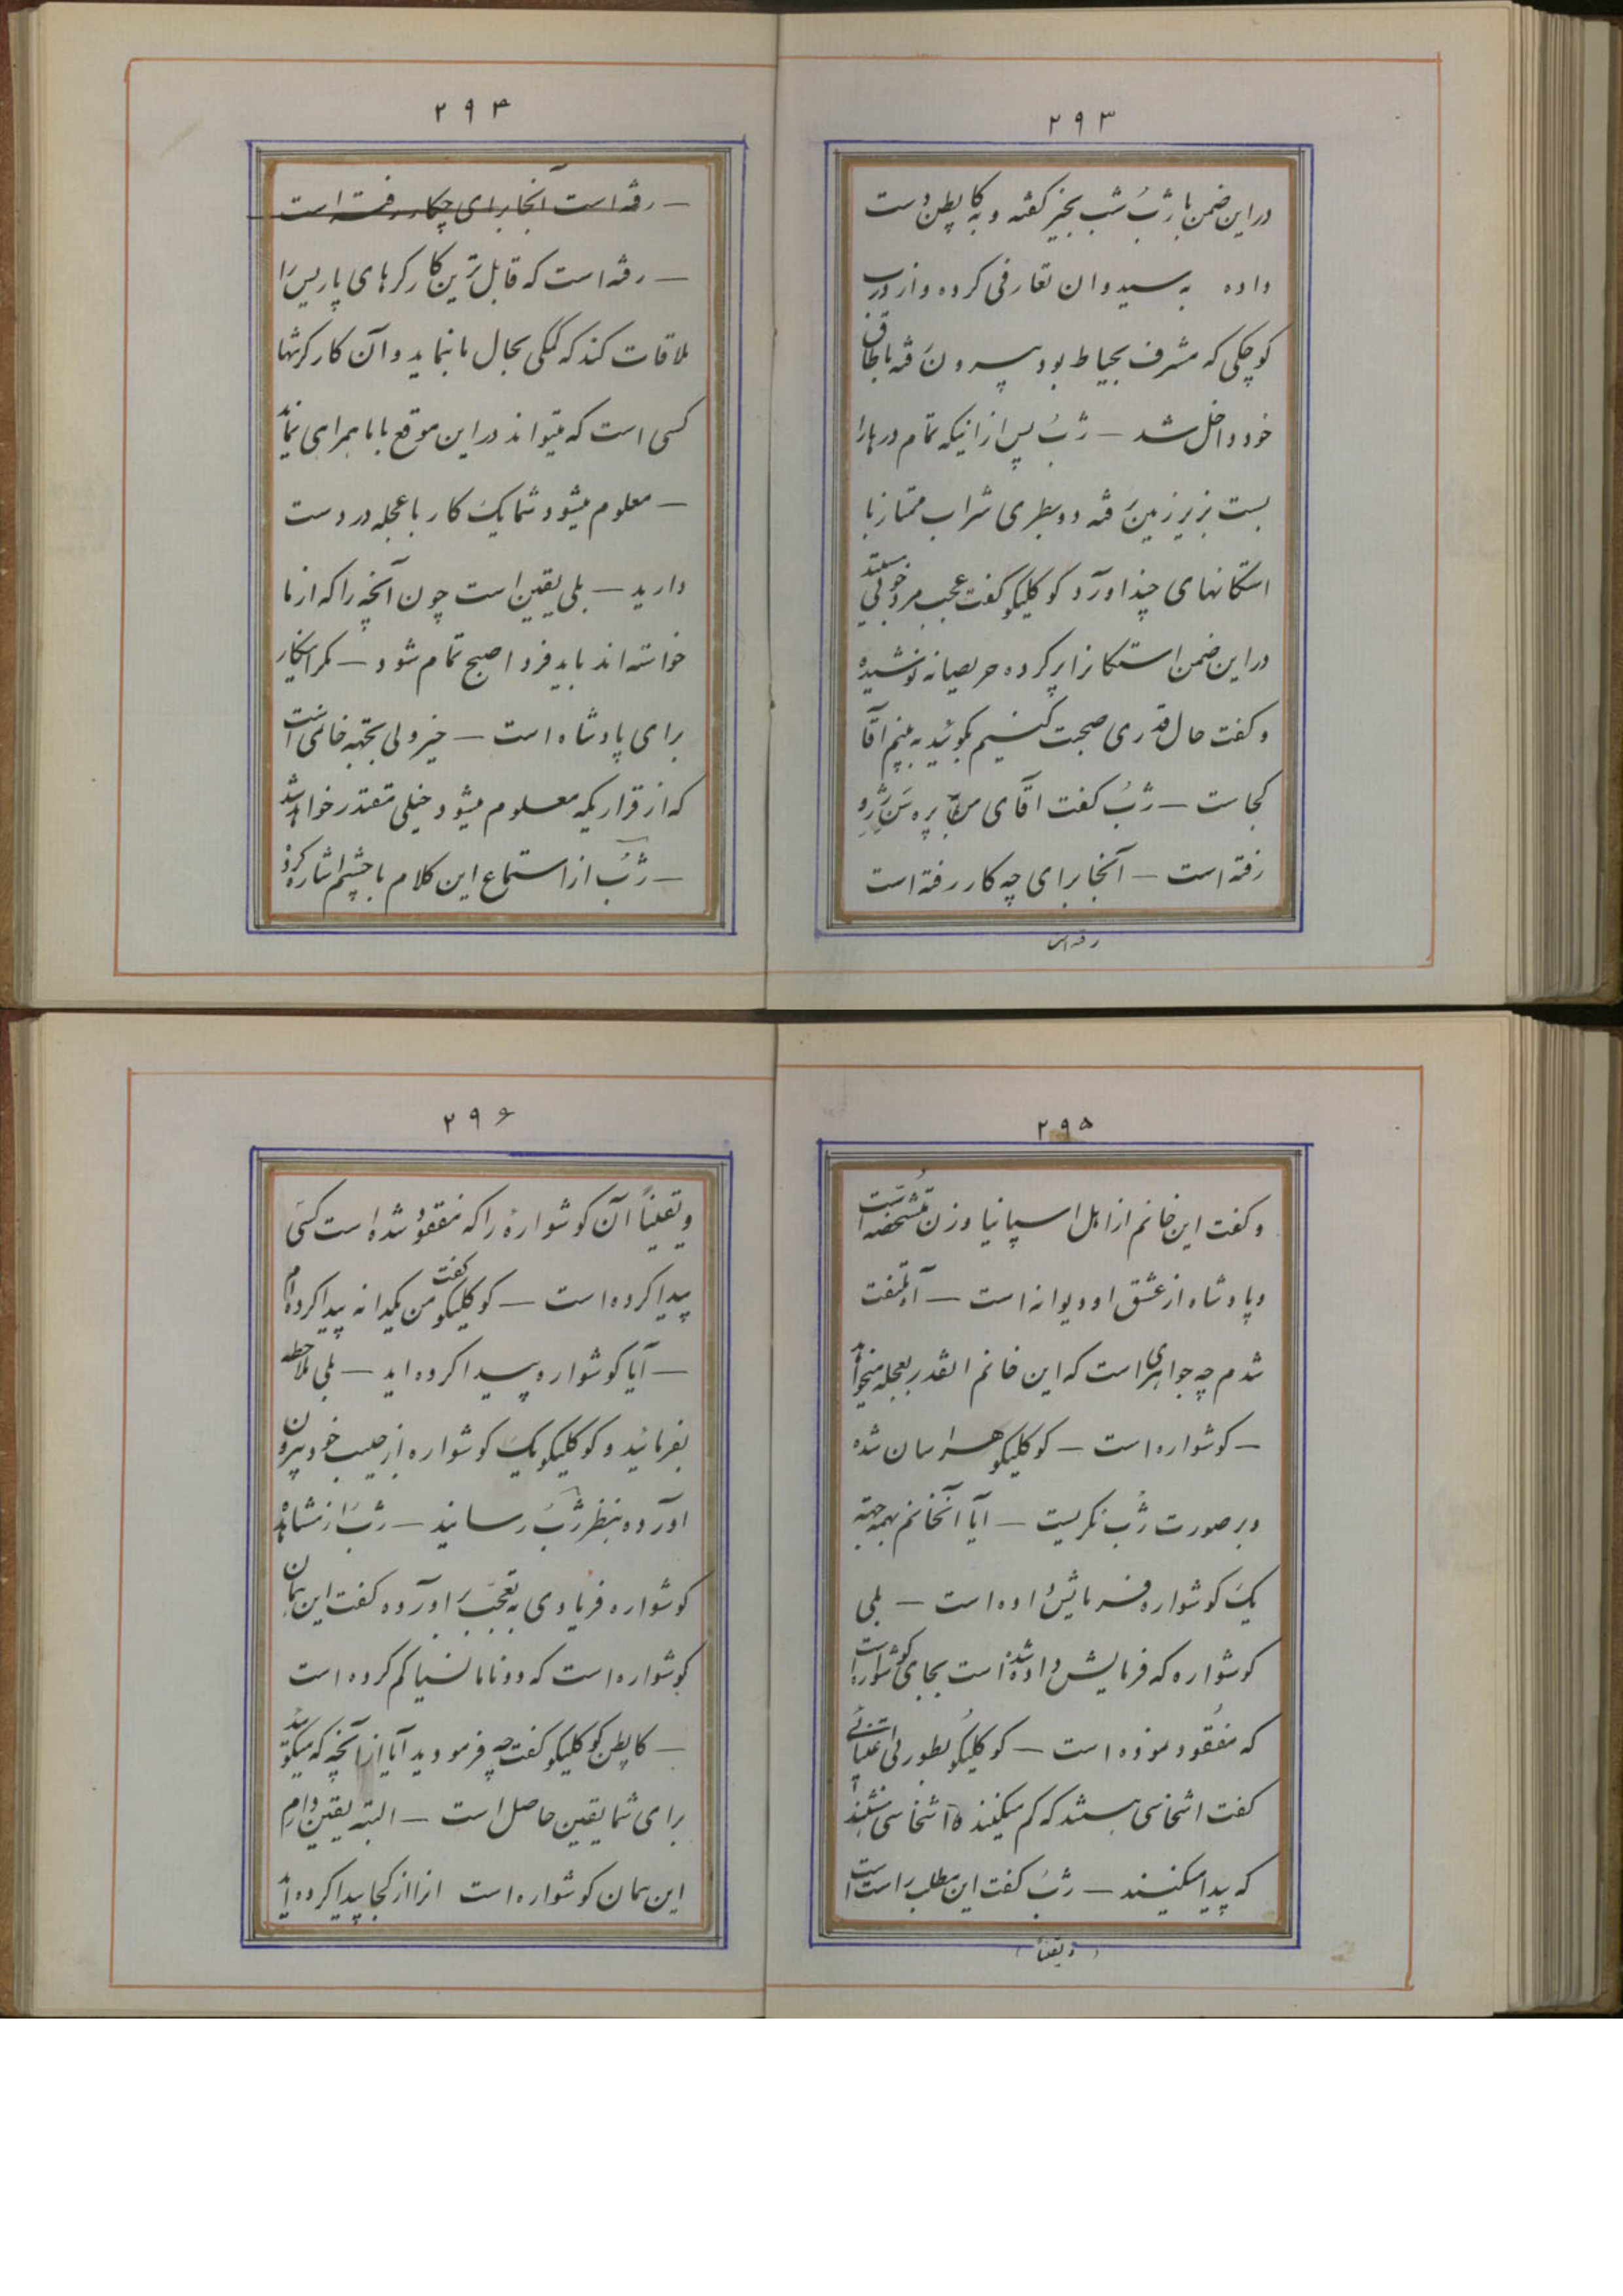 ۲۹۳
در این ضمن با ژب شب بخیر گفته و به کاپطن دست
داده به سیدوان تعارفی کرده و از درب
کوچکی که مشرف بحیاط بود بیرون رفته باطاق
خود داخل شد — ژب پس از اینکه تمام درها را
بست بزیر زمین رفته دو بطری شراب ممتاز با
استکانهای چند آورد کوکلیکو گفت عجب مرد خوبی هستید
در این ضمن استکانرا پر کرده حریصانه نوشیده
و گفت حال قدری صحبت کنیم بگوئید به بینم آقا
کجاست — ژب گفت آقای من به پره سن ژروه
رفته است — آنجا برای چه کار رفته است
رفته است
۲۹۴
— رفته است آنجا برای چکار رفته است
— رفته است که قابل ترین کارگرهای پاریس را
ملاقات کند که کمکی بحال ما بنماید و آن کارگر تنها
کسی است که میتواند در این موقع با ما همراهی نماید
— معلوم میشود شما یک کار با عجله در دست
دارید — بلی یقین است چون آنچه را که از ما
خواسته اند باید فردا صبح تمام شود — مگر اینکار
برای پادشاه است — خیر ولی بجهة خانمی است
که از قراریکه معلوم میشود خیلی مقتدر خواهد شد
— ژب از استماع این کلام با چشم اشاره کرد
۲۹۵
و گفت این خانم از اهل اسپانیا و زن متشخصه است
و پادشاه از عشق او دیوانه است — آه ملتفت
شدم چه جواهری است که این خانم اینقدر بعجله میخواهد
— گوشواره است — کوکلیکو هراسان شده
و بر صورت ژب نگریست — آیا آنخانم بهمه جهة
یک گوشواره فرمایش داده است — بلی
گوشواره که فرمایش داده شده است بجای گوشواره است
که مفقود نموده است — کوکلیکو بطور بی اعتنائی
گفت اشخاصی هستند که گم میکنند و اشخاصی هستند
که پیدا میکنند — ژب گفت این مطلب راست است
( و یقیناً )
۲۹۶
و یقیناً آن گوشواره را که مفقود شده است کسی
پیدا کرده است — کوکلیکو گفت من یکدانه پیدا کرده ام
— آیا گوشواره پیدا کرده اید — بلی ملاحظه
بفرمائید و کوکلیکو یک گوشواره از جیب خود بیرون
آورده بنظر ژب رسانید — ژب از مشاهده
گوشواره فریادی به تعجب بر آورده گفت این همان
گوشواره است که دونا مانسیا گم کرده است
— کاپطن کوکلیکو گفت چه فرمودید آیا از آنچه که میگوئید
برای شما یقین حاصل است — البته یقین دارم
این همان گوشواره است آنرا از کجا پیدا کرده اید